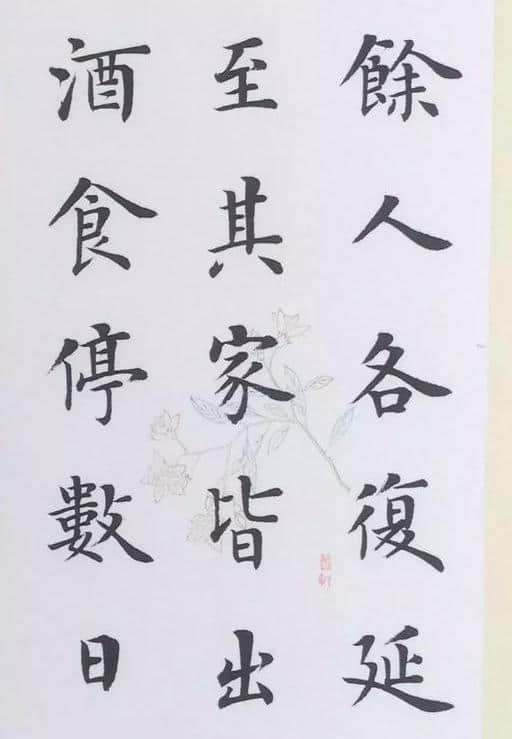 餘人各復延
至其家皆出
酒食停數日